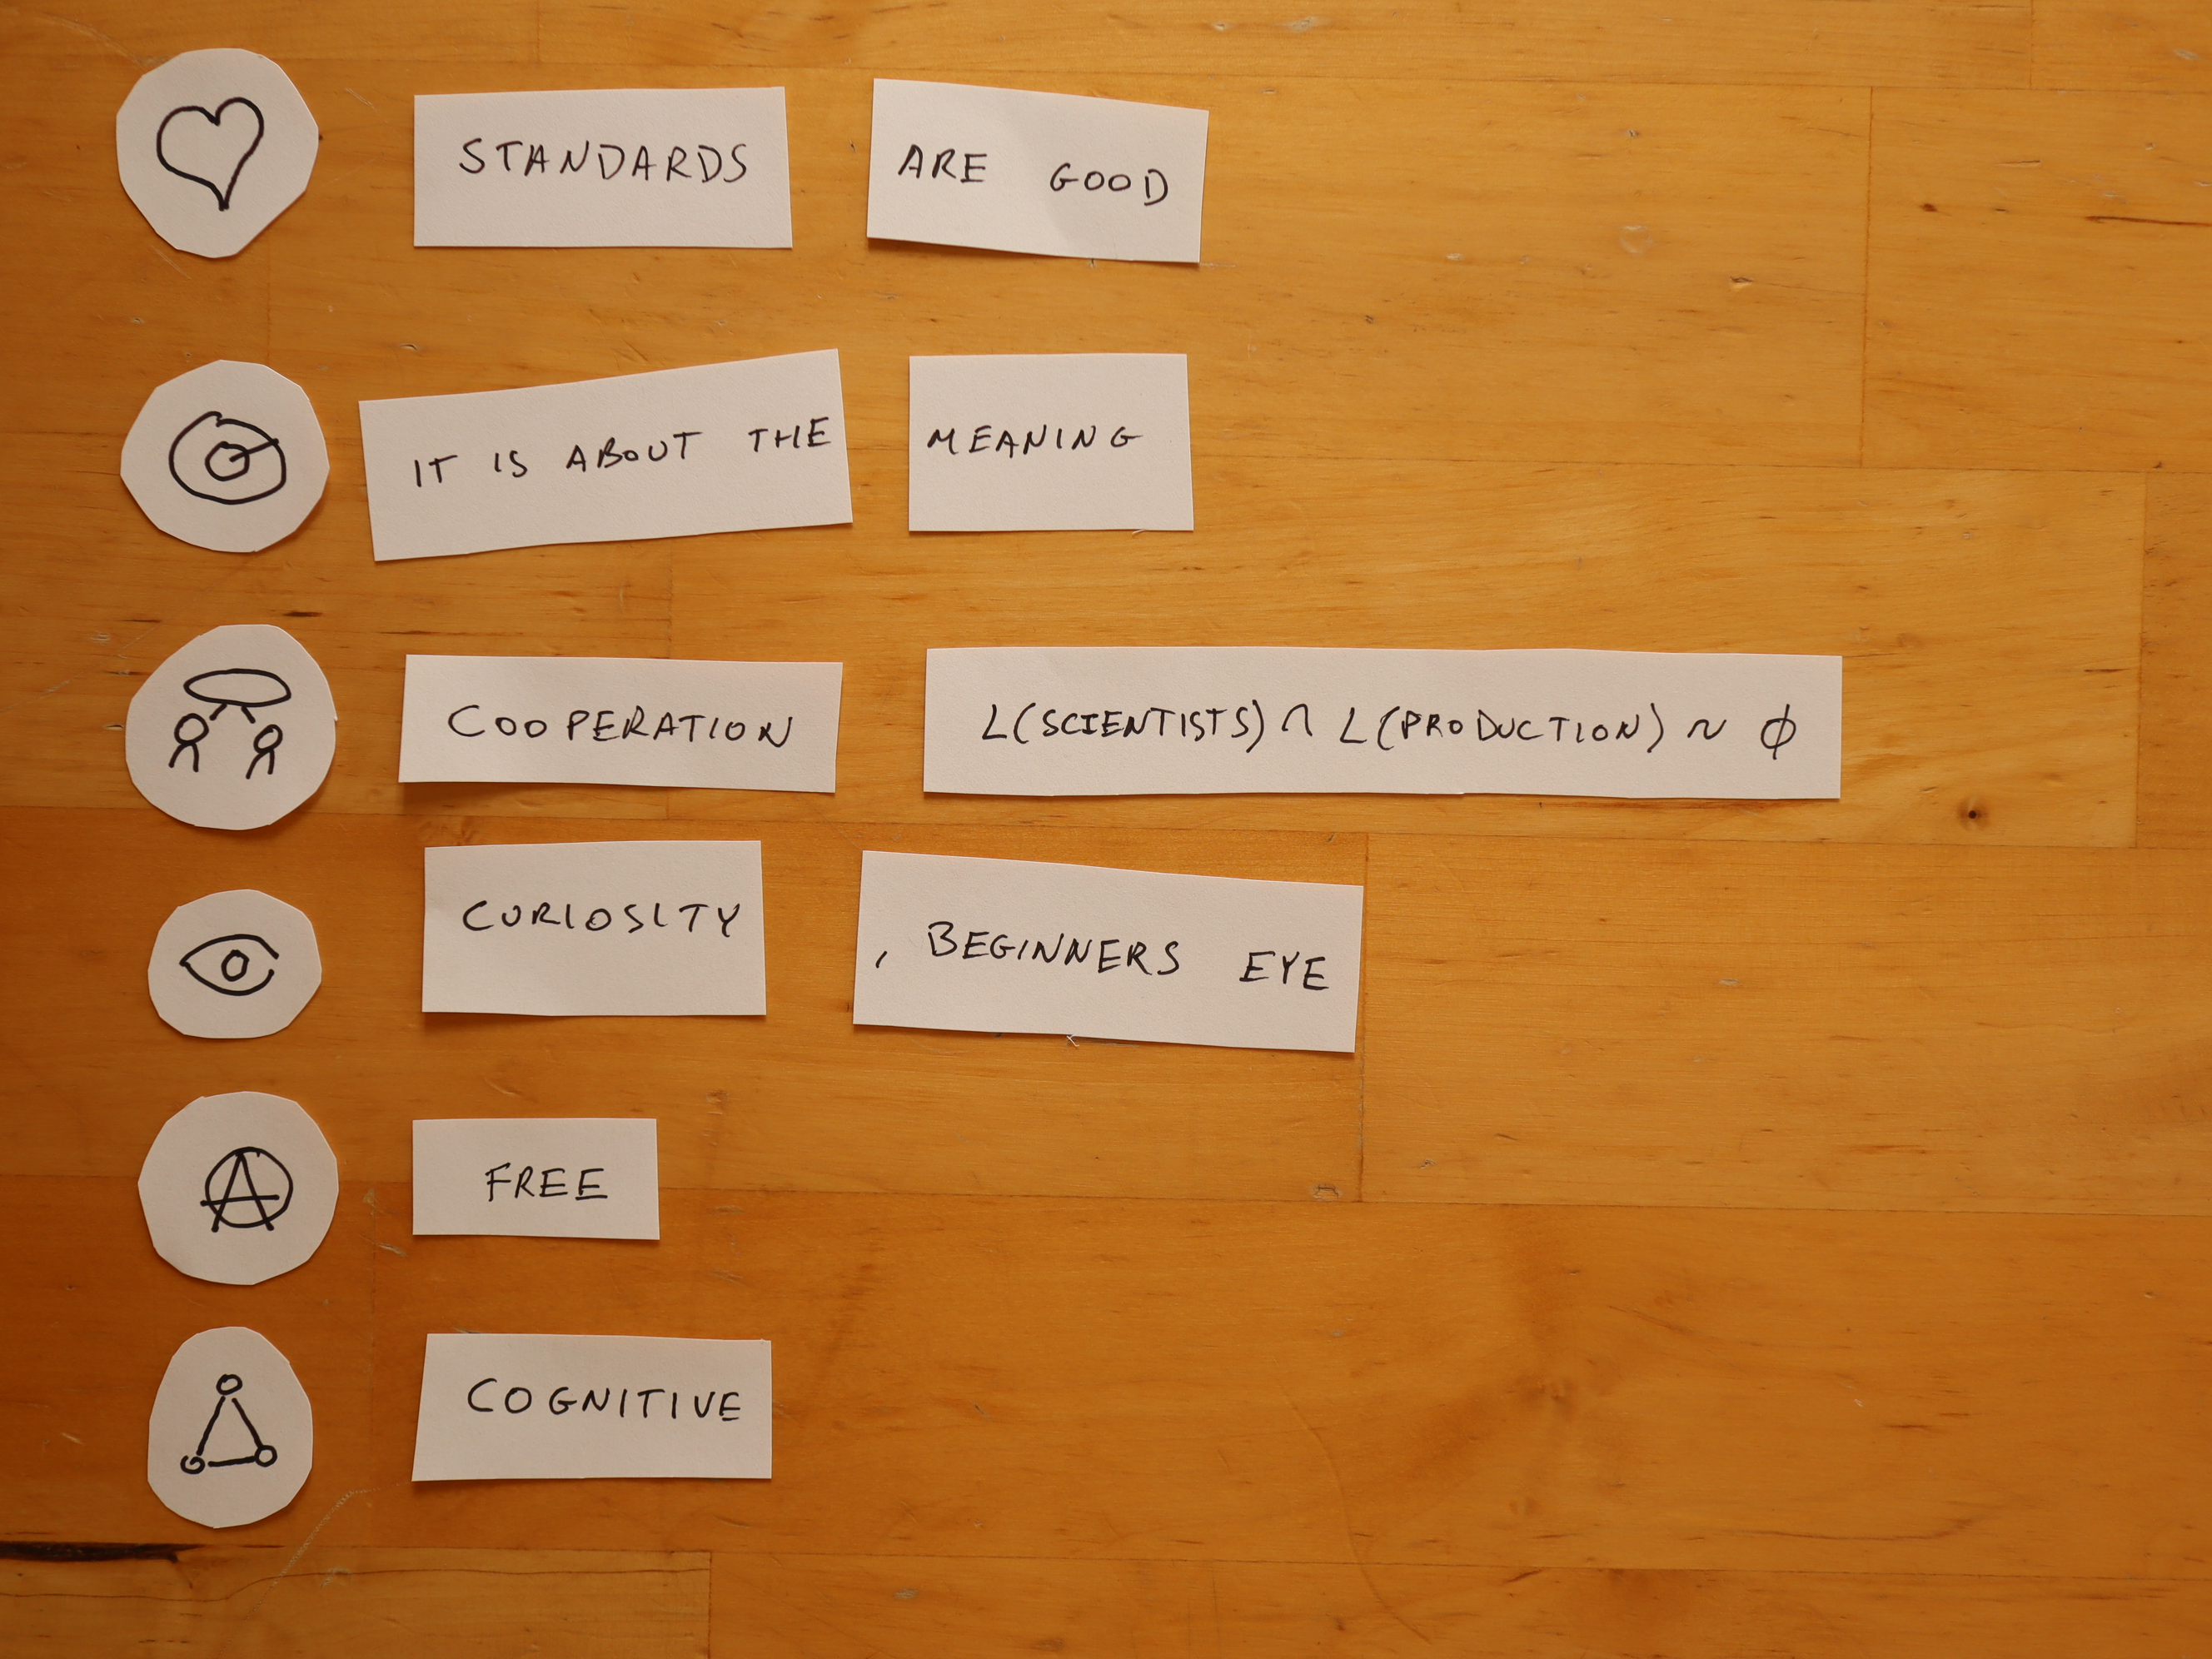 STANDARDS ARE GOOD
IT IS ABOUT THE MEANING
COOPERATION L(SCIENTISTS) ∩ L(PRODUCTION) ~ ∅
CURIOSITY , BEGINNERS EYE
A FREE
COGNITIVE